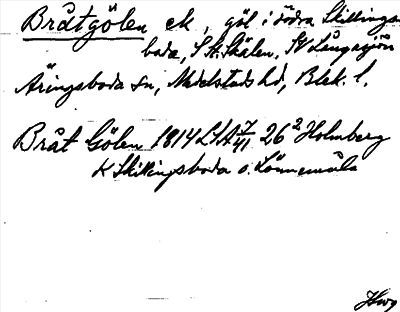 Bråtgölen ek, göl i södra Skillings-
boda, S St. Skälen, SV Långasjön
Äringsboda sn, Medelstads hd, Blek. l.
Bråt Gölen 1814 LSA 7/41 26² Holmberg
K Skillingsboda o. Lönnemåla